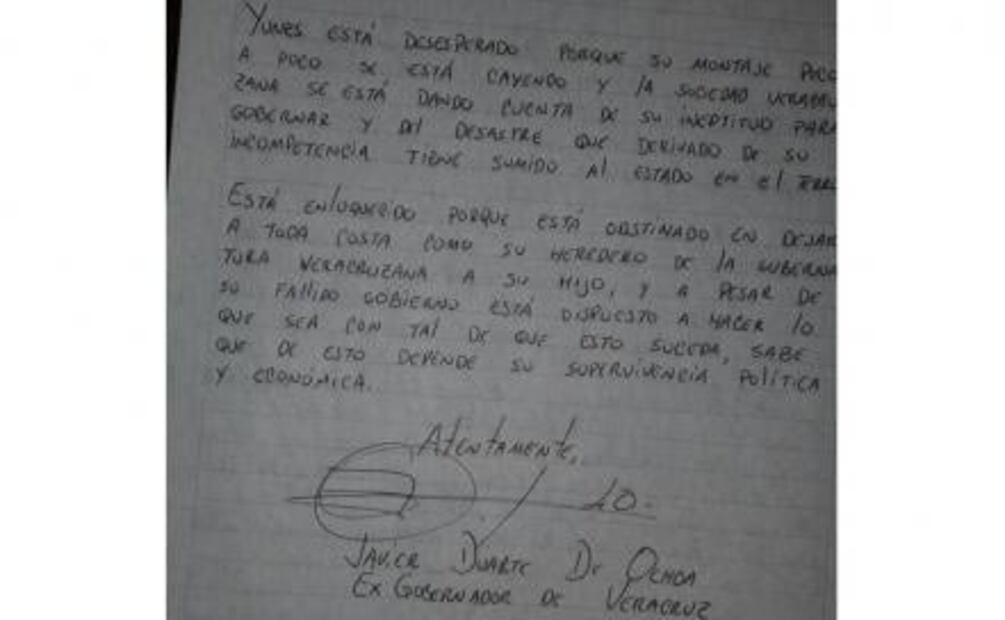 YUNES ESTÁ DESESPERADO PORQUE SU MONTAJE POCO
A POCO SE ESTÁ CAYENDO Y LA SOCIEDAD VERACRU
ZANA SE ESTÁ DANDO CUENTA DE SU INEPTITUD PARA
GOBERNAR Y DEL DESASTRE QUE DERIVADO DE SU
INCOMPETENCIA TIENE SUMIDO AL ESTADO EN EL
ESTÁ ENLOQUERIDO PORQUE ESTÁ OBSTINADO EN DEJAR
A TODA COSTA COMO SU HEREDERO DE LA GUBERNA
TURA VERACRUZANA A SU HIJO, Y A PESAR DE
SU FALLIDO GOBIERNO ESTÁ DISPUESTO A HACER LO
QUE SEA CON TAL DE QUE ESTO SUCEDA, SABE
QUE DE ESTO DEPENDE SU SUPERVIVENCIA POLÍTICA
Y ECONÓMICA.
ATENTAMENTE,
JAVIER DUARTE DE OCHOA
EX GOBERNADOR DE VERACRUZ